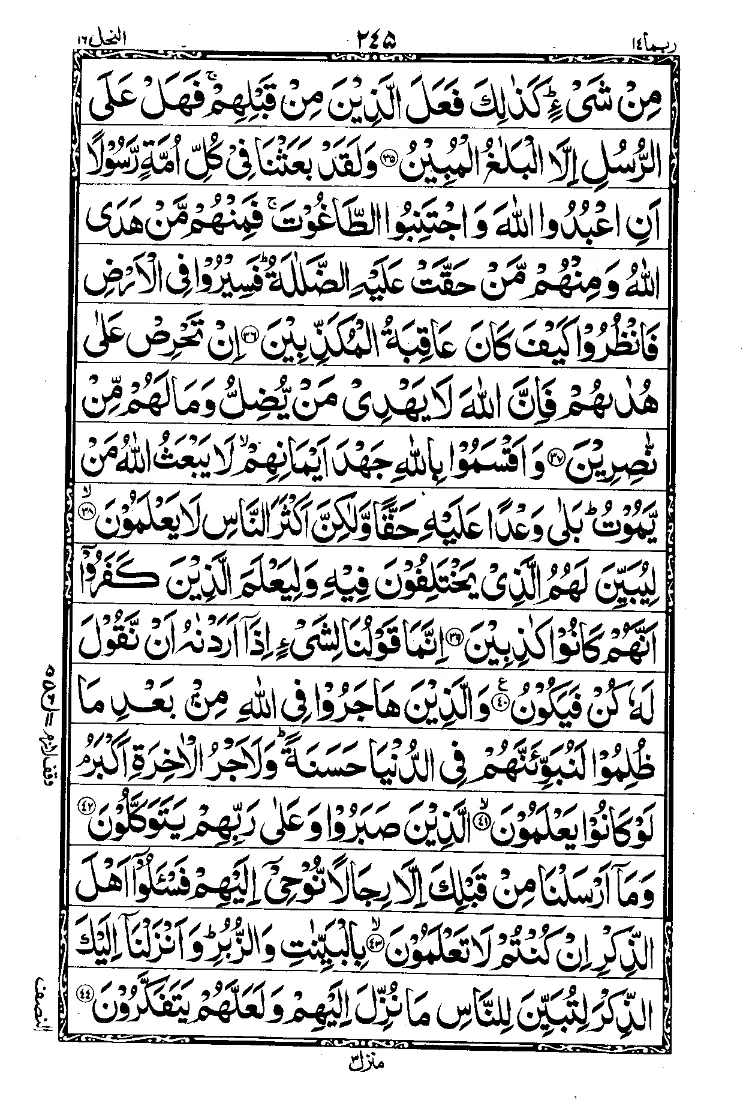 ربما ١٤
٢٤٥
النحل ١٦
مِنْ شَیْءٍ ؕ كَذٰلِكَ فَعَلَ الَّذِیْنَ مِنْ قَبْلِهِمْ ۚ فَهَلْ عَلَی
الرُّسُلِ اِلَّا الْبَلٰغُ الْمُبِیْنُ ﴿۳۵﴾ وَلَقَدْ بَعَثْنَا فِیْ كُلِّ اُمَّةٍ رَّسُوْلًا
اَنِ اعْبُدُوا اللّٰهَ وَ اجْتَنِبُوا الطَّاغُوْتَ ۚ فَمِنْهُمْ مَّنْ هَدَی
اللّٰهُ وَمِنْهُمْ مَّنْ حَقَّتْ عَلَیْهِ الضَّلٰلَةُ ؕ فَسِیْرُوْا فِی الْاَرْضِ
فَانْظُرُوْا كَیْفَ كَانَ عَاقِبَةُ الْمُكَذِّبِیْنَ ﴿۳۶﴾ اِنْ تَحْرِصْ عَلٰی
هُدٰىهُمْ فَاِنَّ اللّٰهَ لَا یَهْدِیْ مَنْ یُّضِلُّ وَمَا لَهُمْ مِّنْ
نّٰصِرِیْنَ ﴿۳۷﴾ وَ اَقْسَمُوْا بِاللّٰهِ جَهْدَ اَیْمَانِهِمْ ۙ لَا یَبْعَثُ اللّٰهُ مَنْ
یَّمُوْتُ ؕ بَلٰی وَعْدًا عَلَیْهِ حَقًّا وَّلٰكِنَّ اَكْثَرَ النَّاسِ لَا یَعْلَمُوْنَ ﴿۳۸﴾ ۙ
لِیُبَیِّنَ لَهُمُ الَّذِیْ یَخْتَلِفُوْنَ فِیْهِ وَلِیَعْلَمَ الَّذِیْنَ كَفَرُوْۤا
اَنَّهُمْ كَانُوْا كٰذِبِیْنَ ﴿۳۹﴾ اِنَّمَا قَوْلُنَا لِشَیْءٍ اِذَاۤ اَرَدْنٰهُ اَنْ نَّقُوْلَ
لَهٗ كُنْ فَیَكُوْنُ ﴿۴۰﴾ ع وَالَّذِیْنَ هَاجَرُوْا فِی اللّٰهِ مِنْۢ بَعْدِ مَا
ظُلِمُوْا لَنُبَوِّئَنَّهُمْ فِی الدُّنْیَا حَسَنَةً ؕ وَلَاَجْرُ الْاٰخِرَةِ اَكْبَرُ ۘ
لَوْ كَانُوْا یَعْلَمُوْنَ ﴿۴۱﴾ ۙ الَّذِیْنَ صَبَرُوْا وَعَلٰی رَبِّهِمْ یَتَوَكَّلُوْنَ ﴿۴۲﴾
وَمَاۤ اَرْسَلْنَا مِنْ قَبْلِكَ اِلَّا رِجَالًا نُّوْحِیْۤ اِلَیْهِمْ فَسْـَٔلُوْۤا اَهْلَ
الذِّكْرِ اِنْ كُنْتُمْ لَا تَعْلَمُوْنَ ﴿۴۳﴾ ۙ بِالْبَیِّنٰتِ وَالزُّبُرِ ؕ وَ اَنْزَلْنَاۤ اِلَیْكَ
الذِّكْرَ لِتُبَیِّنَ لِلنَّاسِ مَا نُزِّلَ اِلَیْهِمْ وَلَعَلَّهُمْ یَتَفَكَّرُوْنَ ﴿۴۴﴾
النصف
منزل ۳